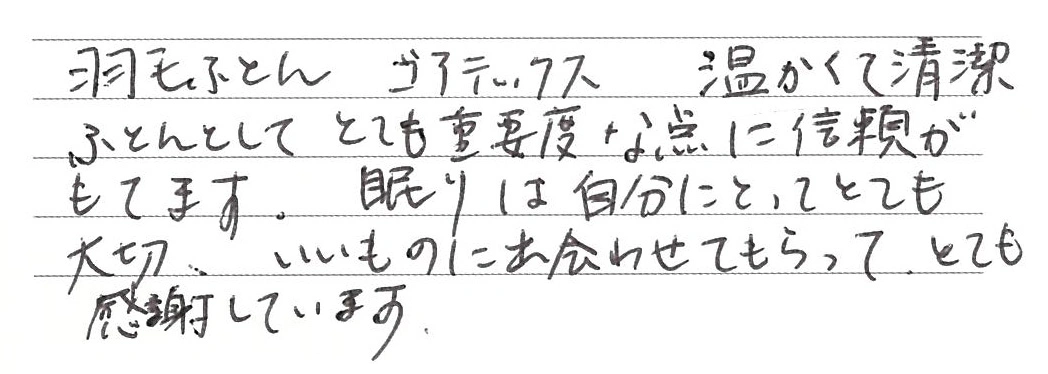 羽毛ふとん ゴアテックス 温かくて清潔
ふとんとして とても重要度な点に信頼が
もてます。 眠りは自分にとってとても
大切、 いいものに出会わせてもらって、とても
感謝しています。